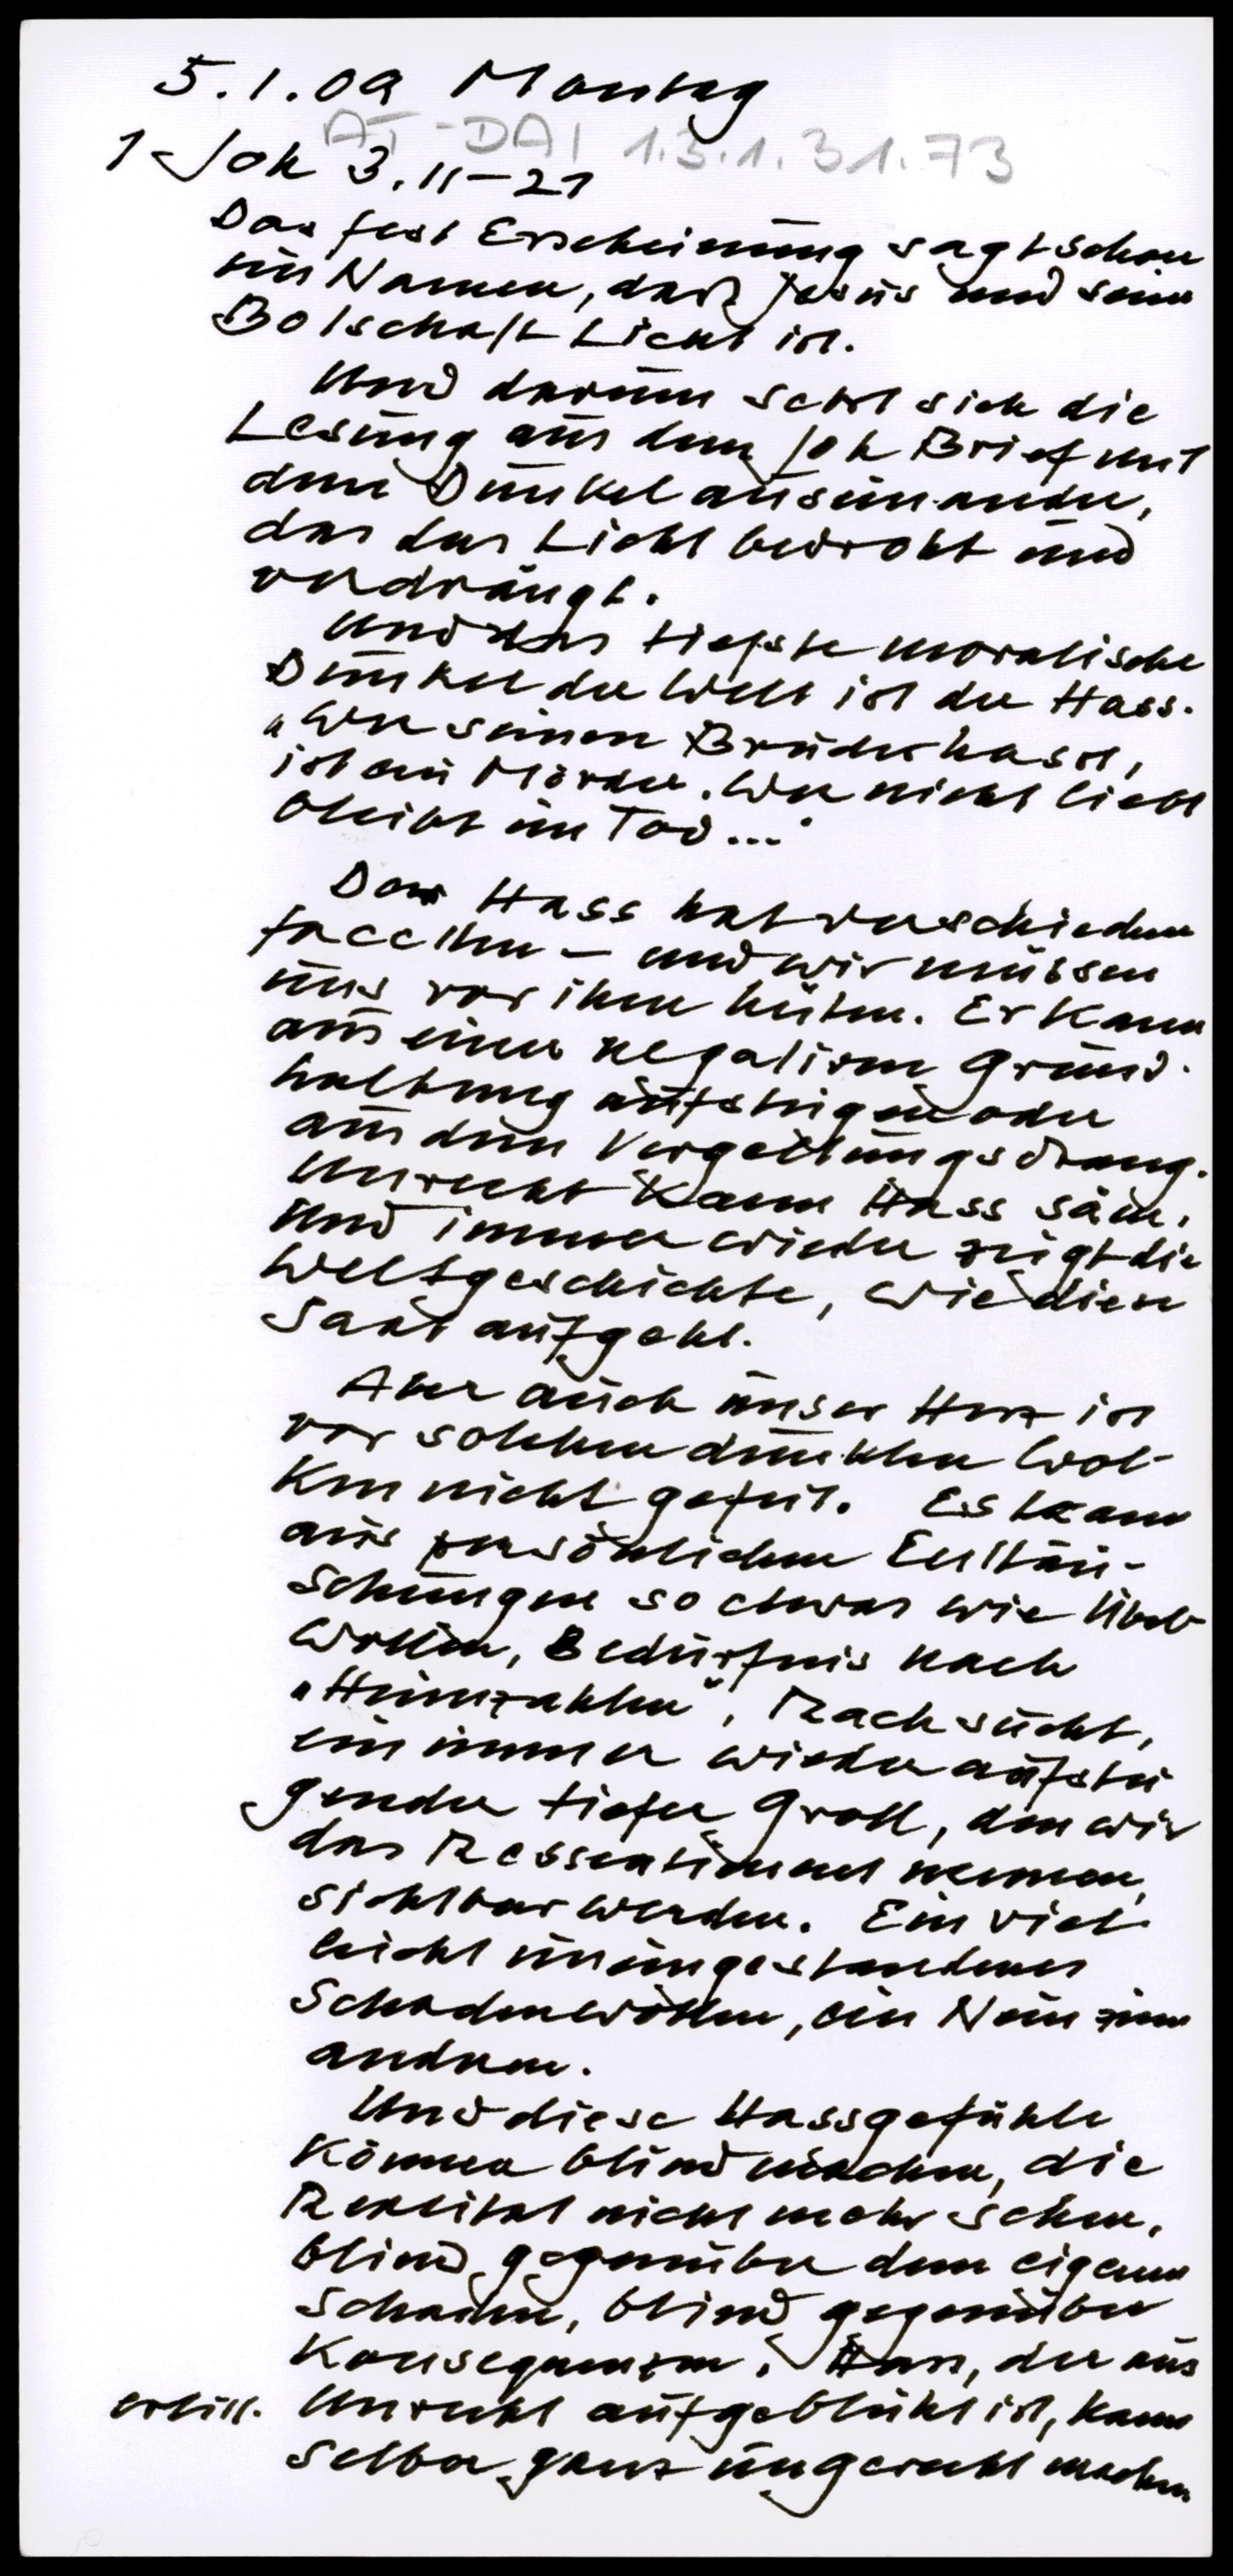 5.1.09 Montag
AT-DAI 1.3.1.31.73
1 Joh 3,11-21
Das fest Erscheinung sagt schon
im Namen, dass Jesus und seine
Botschaft Licht ist.
Und darum setzt sich die
Lesung aus dem Joh Brief mit
dem Dunkel auseinander,
das das Licht bedroht und
verdrängt.
Und das tiefste moralische
Dunkel der Welt ist der Hass.
"Wer seinen Bruder hasst,
ist ein Mörder. Wer nicht liebt
bleibt im Tod..."
Der Hass hat verschiedene
Facetten - und wir müssen
uns vor ihm hüten. Er kann
aus einer negativen Grund-
haltung aufsteigen oder
aus dem Vergeltungsdrang.
Unrecht kann Hass säen.
Und immer wieder zeigt die
Weltgeschichte, wie diese
Saat aufgeht.
Aber auch unser Herz ist
vor solchen dunklen Wol-
ken nicht gefeit. Es kann
aus persönlichen Enttäu-
schungen so etwas wie Übel-
wollen, Bedürfnis nach
"Heimzahlen", Rachsucht,
ein immer wieder aufstei
gender tiefer Groll, den wir
das Ressentiment nennen,
sichtbar werden. Ein viel-
leicht uneingestandenes
Schadenwollen, ein Nein zum
anderen.
Und diese Hassgefühle
können blind machen, die
Realität nicht mehr sehen,
blind gegenüber dem eigenen
Schaden, blind gegenüber
Konsequenzen. Hass, der aus
erlitt. Unrecht aufgeblüht ist, kann
selber ganz ungerecht machen